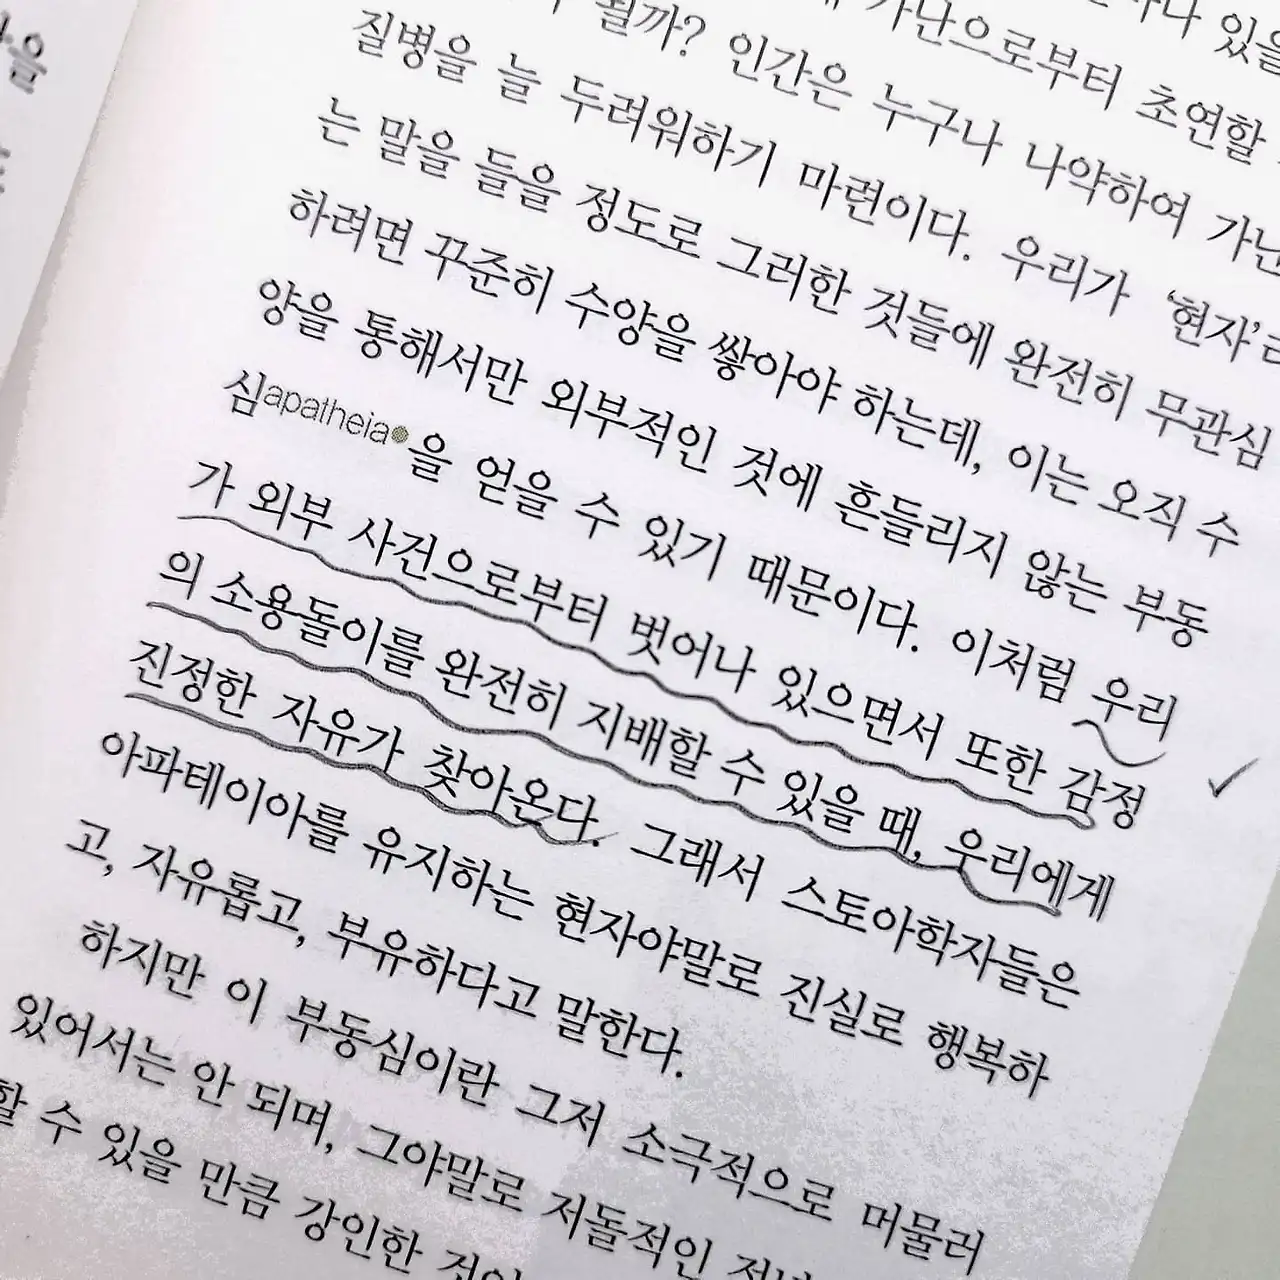 을
될까? 가난으로부터 초연할
질병을 늘 두려워하기 마련이다. 인간은 누구나 나약하여 가난
는 말을 들을 정도로 그러한 것들에 완전히 무관심 우리가 ‘현자’라
하려면 꾸준히 수양을 쌓아야 하는데, 이는 오직 수
양을 통해서만 외부적인 것에 흔들리지 않는 부동
심apatheia을 얻을 수 있기 때문이다. 이처럼 우리
가 외부 사건으로부터 벗어나 있으면서 또한 감정
의 소용돌이를 완전히 지배할 수 있을 때, 우리에게
진정한 자유가 찾아온다. 그래서 스토아학자들은
아파테이아를 유지하는 현자야말로 진실로 행복하
고, 자유롭고, 부유하다고 말한다.
하지만 이 부동심이란 그저 소극적으로 머물러
있어서는 안 되며, 그야말로 저돌적인
할 수 있을 만큼 강인한